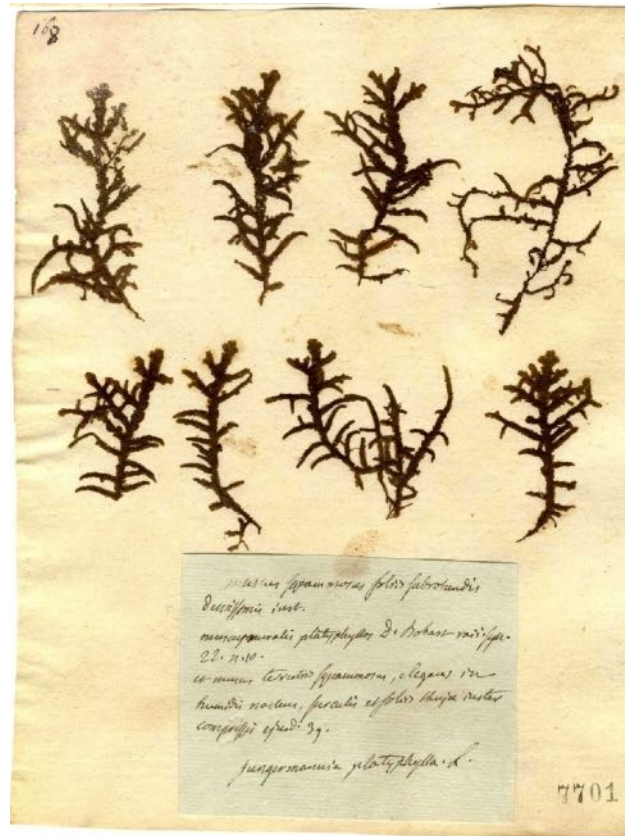 168
muscus squammosus foliis subrotundis
densissimis inst.
platyphyllos D. Bobart raii. syn.
22. n. 10.
et muscus terrestris squammosus, elegans in
humidis nascens, surculis et foliis thujæ instar
compressis ejusd. 39.
jungermannia platyphylla. L.
7701